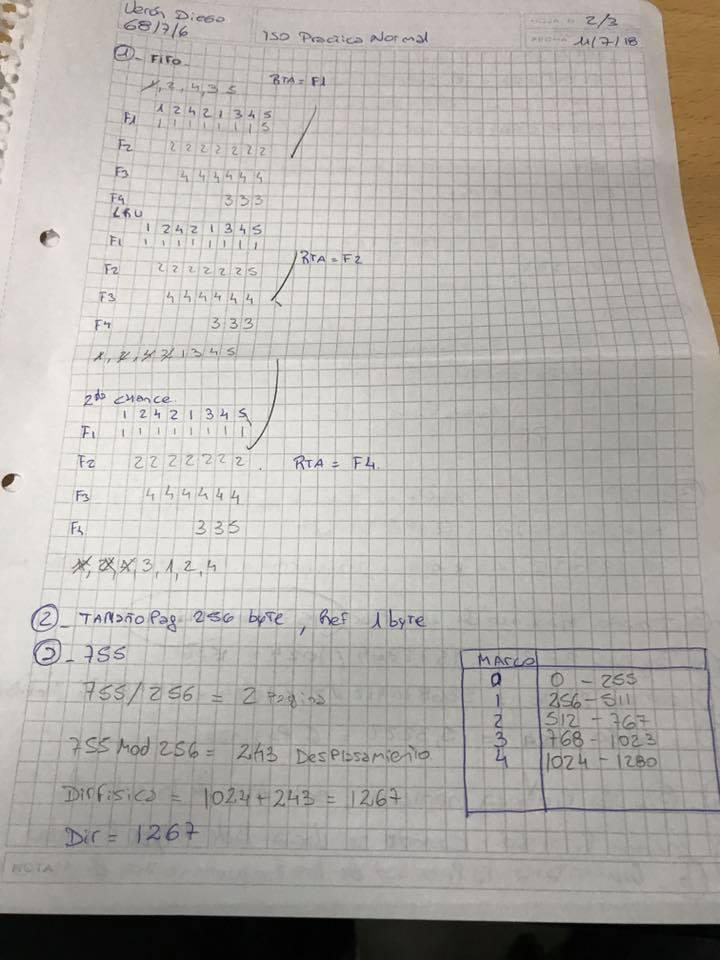 Verón Diego
68/7/6
ISO Practica Normal
2/3
FECHA 11/7/18
1 - FIFO
1, 2, 4, 3 5
RTA = F1
1 2 4 2 1 3 4 5
F1 1 1 1 1 1 1 1 5
F2 2 2 2 2 2 2 2
F3 4 4 4 4 4 4
F4 3 3 3
LRU
1 2 4 2 1 3 4 5
F1 1 1 1 1 1 1 1 1
RTA = F2
F2 2 2 2 2 2 2 5
F3 4 4 4 4 4 4
F4 3 3 3
1, 2, 4 2, 1 3 4 5
2da chance
1 2 4 2 1 3 4 5
F1 1 1 1 1 1 1 1 1
F2 2 2 2 2 2 2 2 .
RTA = F4.
F3 4 4 4 4 4 4
F4 3 3 5
1, 2, 4, 3, 1, 2, 4
2 - TAMAÑO Pag 256 byte, Ref 1 byte
3 - 755
755/256 = 2 Pagina
755 Mod 256 = 243 Desplasamiento
Dirfisica = 1024 + 243 = 1267
Dir = 1267
MARCO
0 0 - 255
1 256 - 511
2 512 - 767
3 768 - 1023
4 1024 - 1280
NOTA